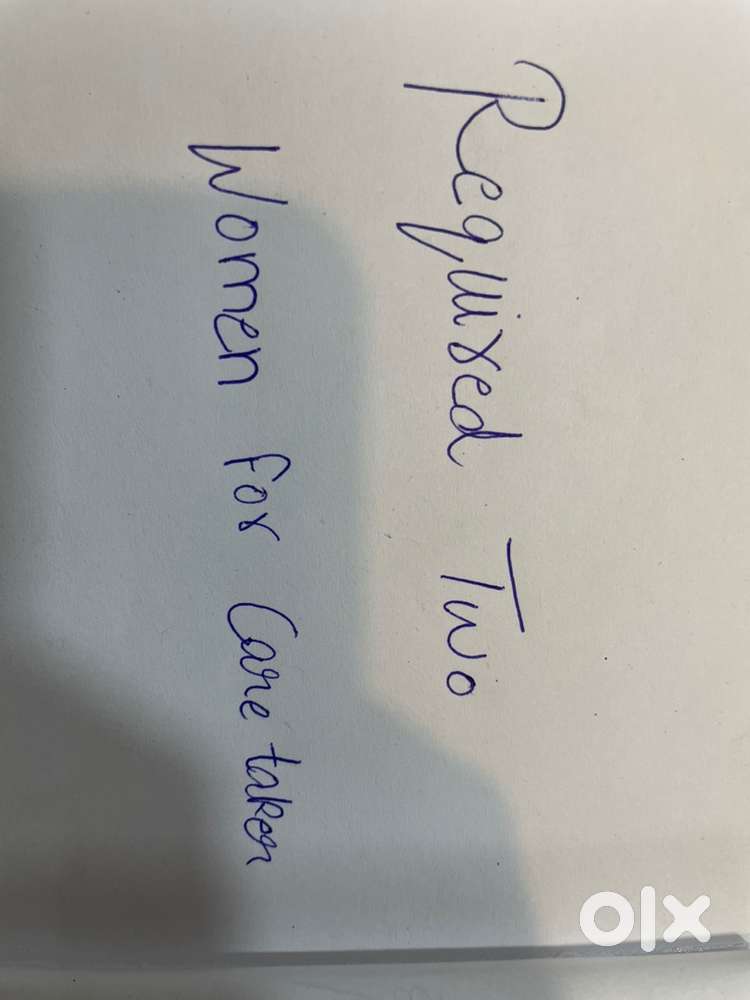 Required Two
Women for Care taker
olx